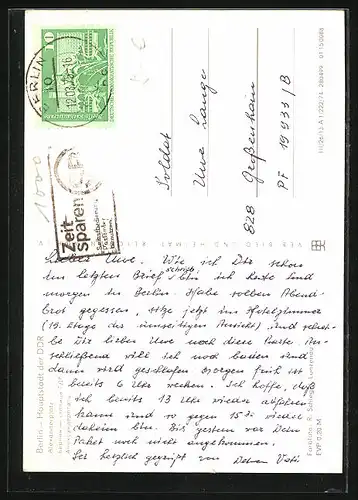 10
BERLIN
12.03.76-16
1000
Zeit
sparen
Soldat
Uwe Lange
828 Großenhain
PF 19933/B
VEB BILD UND HEIMAT
Berlin – Hauptstadt der DDR
EVP 0,20 M
Lieber Uwe. Wie ich Dir schon
im letzten Brief schrieb bin ich heute und
morgen in Berlin. Habe soeben Abend-
brot gegessen, sitze jetzt im Hotelzimmer
(19. Etage der umseitigen Ansicht) und schrei-
be Dir lieber Uwe noch diese Karte. An-
schließend will ich noch baden und
dann wird geschlafen morgen früh ist
bereits 6 Uhr wecken. Ich hoffe, daß
ich bereits 13 Uhr wieder abfahren
kann und so gegen 15³⁰ wieder
daheim bin. Bis gestern war Dein
Paket noch nicht angekommen.
Sei herzlich gegrüßt von Deinem Vati